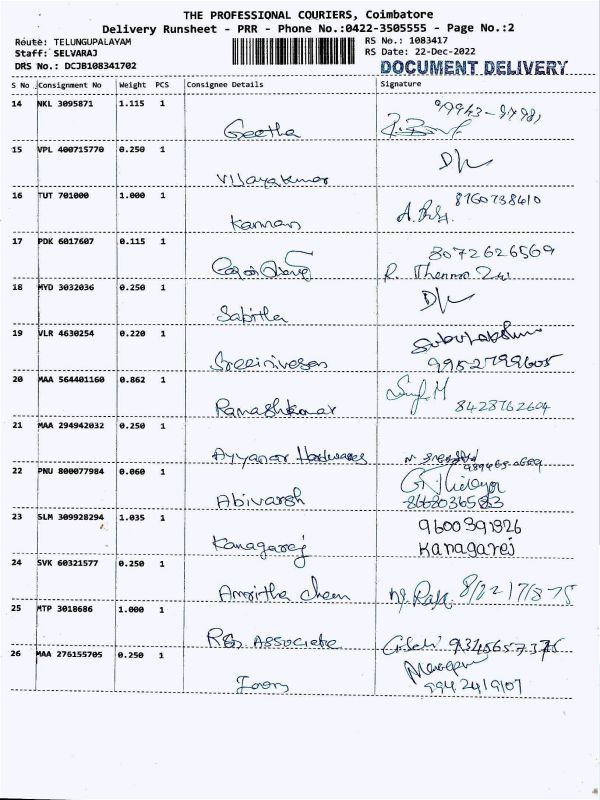 THE PROFESSIONAL COURIERS, Coimbatore
Delivery Runsheet - PRR - Phone No.:0422-3505555 - Page No.:2
Route: TELUNGUPALAYAM
RS No.: 1083417
Staff: SELVARAJ
RS Date: 22-Dec-2022
DRS No.: DCJB108341702
DOCUMENT DELIVERY
S No Consignment No Weight PCS Consignee Details Signature
14 NKL 3095871 1.115 1
Geetha
15 VPL 400715770 0.250 1 D/L
Vijayakumar
16 TUT 701000 1.000 1 8760738410
Kannan
17 PDK 6017607 0.115 1 8072626569
R.
18 MYD 3032036 0.250 1 D/L
Sabitha
19 VLR 4630254 0.220 1 Subulakshmi
Sreenivasan 9952799605
20 MAA 564401160 0.862 1
Ramashkumar 8428762604
21 MAA 294942032 0.250 1
Ayyanar Hardwares
22 PNU 800077984 0.060 1
Abivarsh
23 SLM 309928294 1.035 1 9600391326
Kanagaraj Kanagaraj
24 SVK 60321577 0.250 1
Amritha
25 MTP 3018686 1.000 1
Associate
26 MAA 276155705 0.250 1
9942419107